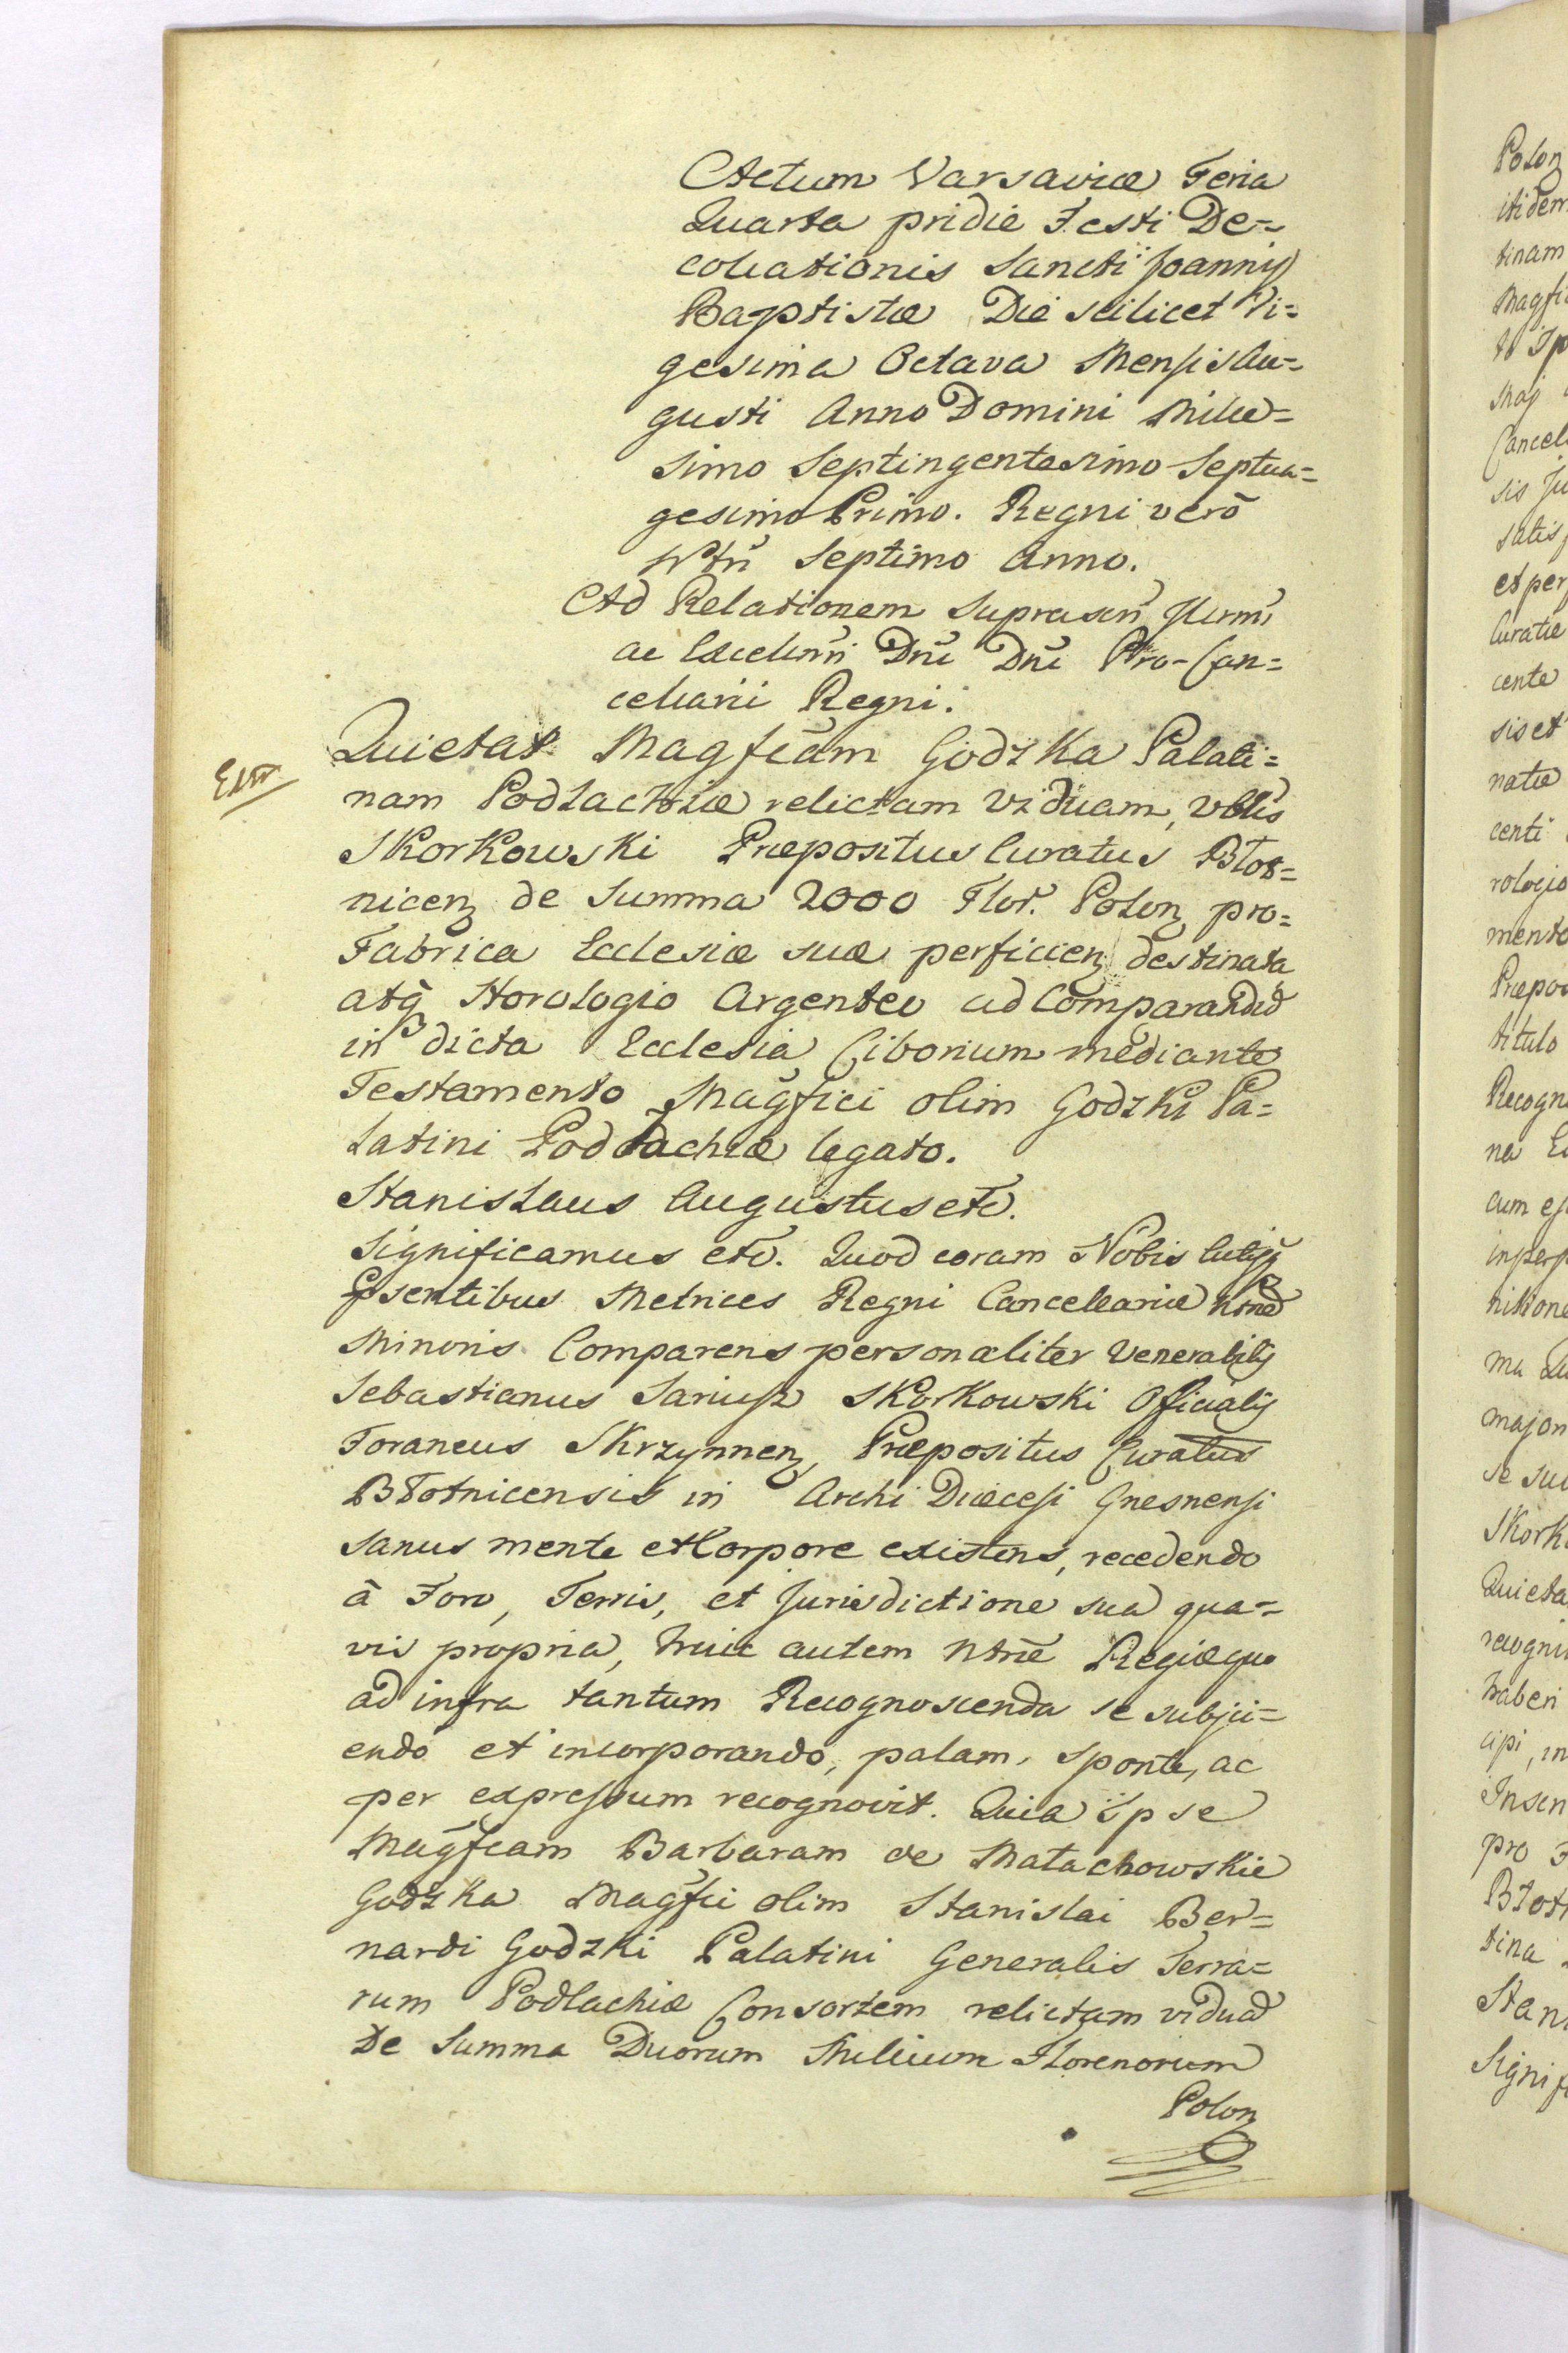 Actum Varsaviæ Feria
Quarta pridie Festi De=
collationis Sancti Joannis
Baptistæ Die scilicet Vi=
gesima Octava Mensis Au=
gusti Anno Domini Mille=
simo Septingentesimo Septua=
gesimo Primo. Regni verò
Ntri Septimo Anno.
Ad Relationem suprascri Illrmi
ac Excellmi Dni Dni Pro-Can=
cellarii Regni.
Quietat Magfcam Godzka Palati=
nam Podlachiæ relictam viduam, Vblis
Skorkowski Præpositus Curatus Błot=
nicen de Summa 2000 Flor. Polon pro=
Fabrica Ecclesiæ suæ perficien destinata
atq Horologio Argenteo ad Comparandū
in dicta Ecclesia Ciborium mediante
Testamento Magfici olim Godzki Pa=
latini Podlachiæ legato.
Stanislaus Augustus etc.
Significamus etc. Quod coram Nobis Actisq
Psentibus Metrices Regni Cancellariæ Ntræ
Minoris Comparens personaliter Venerabilis
Sebastianus Sariusz Skorkowski Officialis
Foraneus Skrzynnen, Præpositus Curatus
Błotnicensis in Archi Diæcesi Gnesnensi
sanus mente et Corpore existens, recedendo
à Foro, Terris, et Jurisdictione sua qua=
vis propria, huic autem Ntræ Regiæque
ad infra tantum Recognoscenda se subjici=
endo et incorporando, palam, sponte, ac
per expressum recognovit. Quia ipse
Magfcam Barbaram de Małachowskie
Godzka Magfci olim Stanislai Ber=
nardi Godzki Palatini Generalis Terra=
rum Podlachiæ Consortem relictam viduā
De Summa Duorum Millium Florenorum
Polon
Polon
itidem
tinam
Magfi
Maj
Cancel
sis Ju
satis
et per
Curatæ
cente
sis et
natæ
centi
rologio
mento
Præpo
titulo
Recogn
na
cum
major
se su
Skork
Quieta
recogni
haberi
cipi, in
Insen
pro
Błot
tina
Stan
Signif